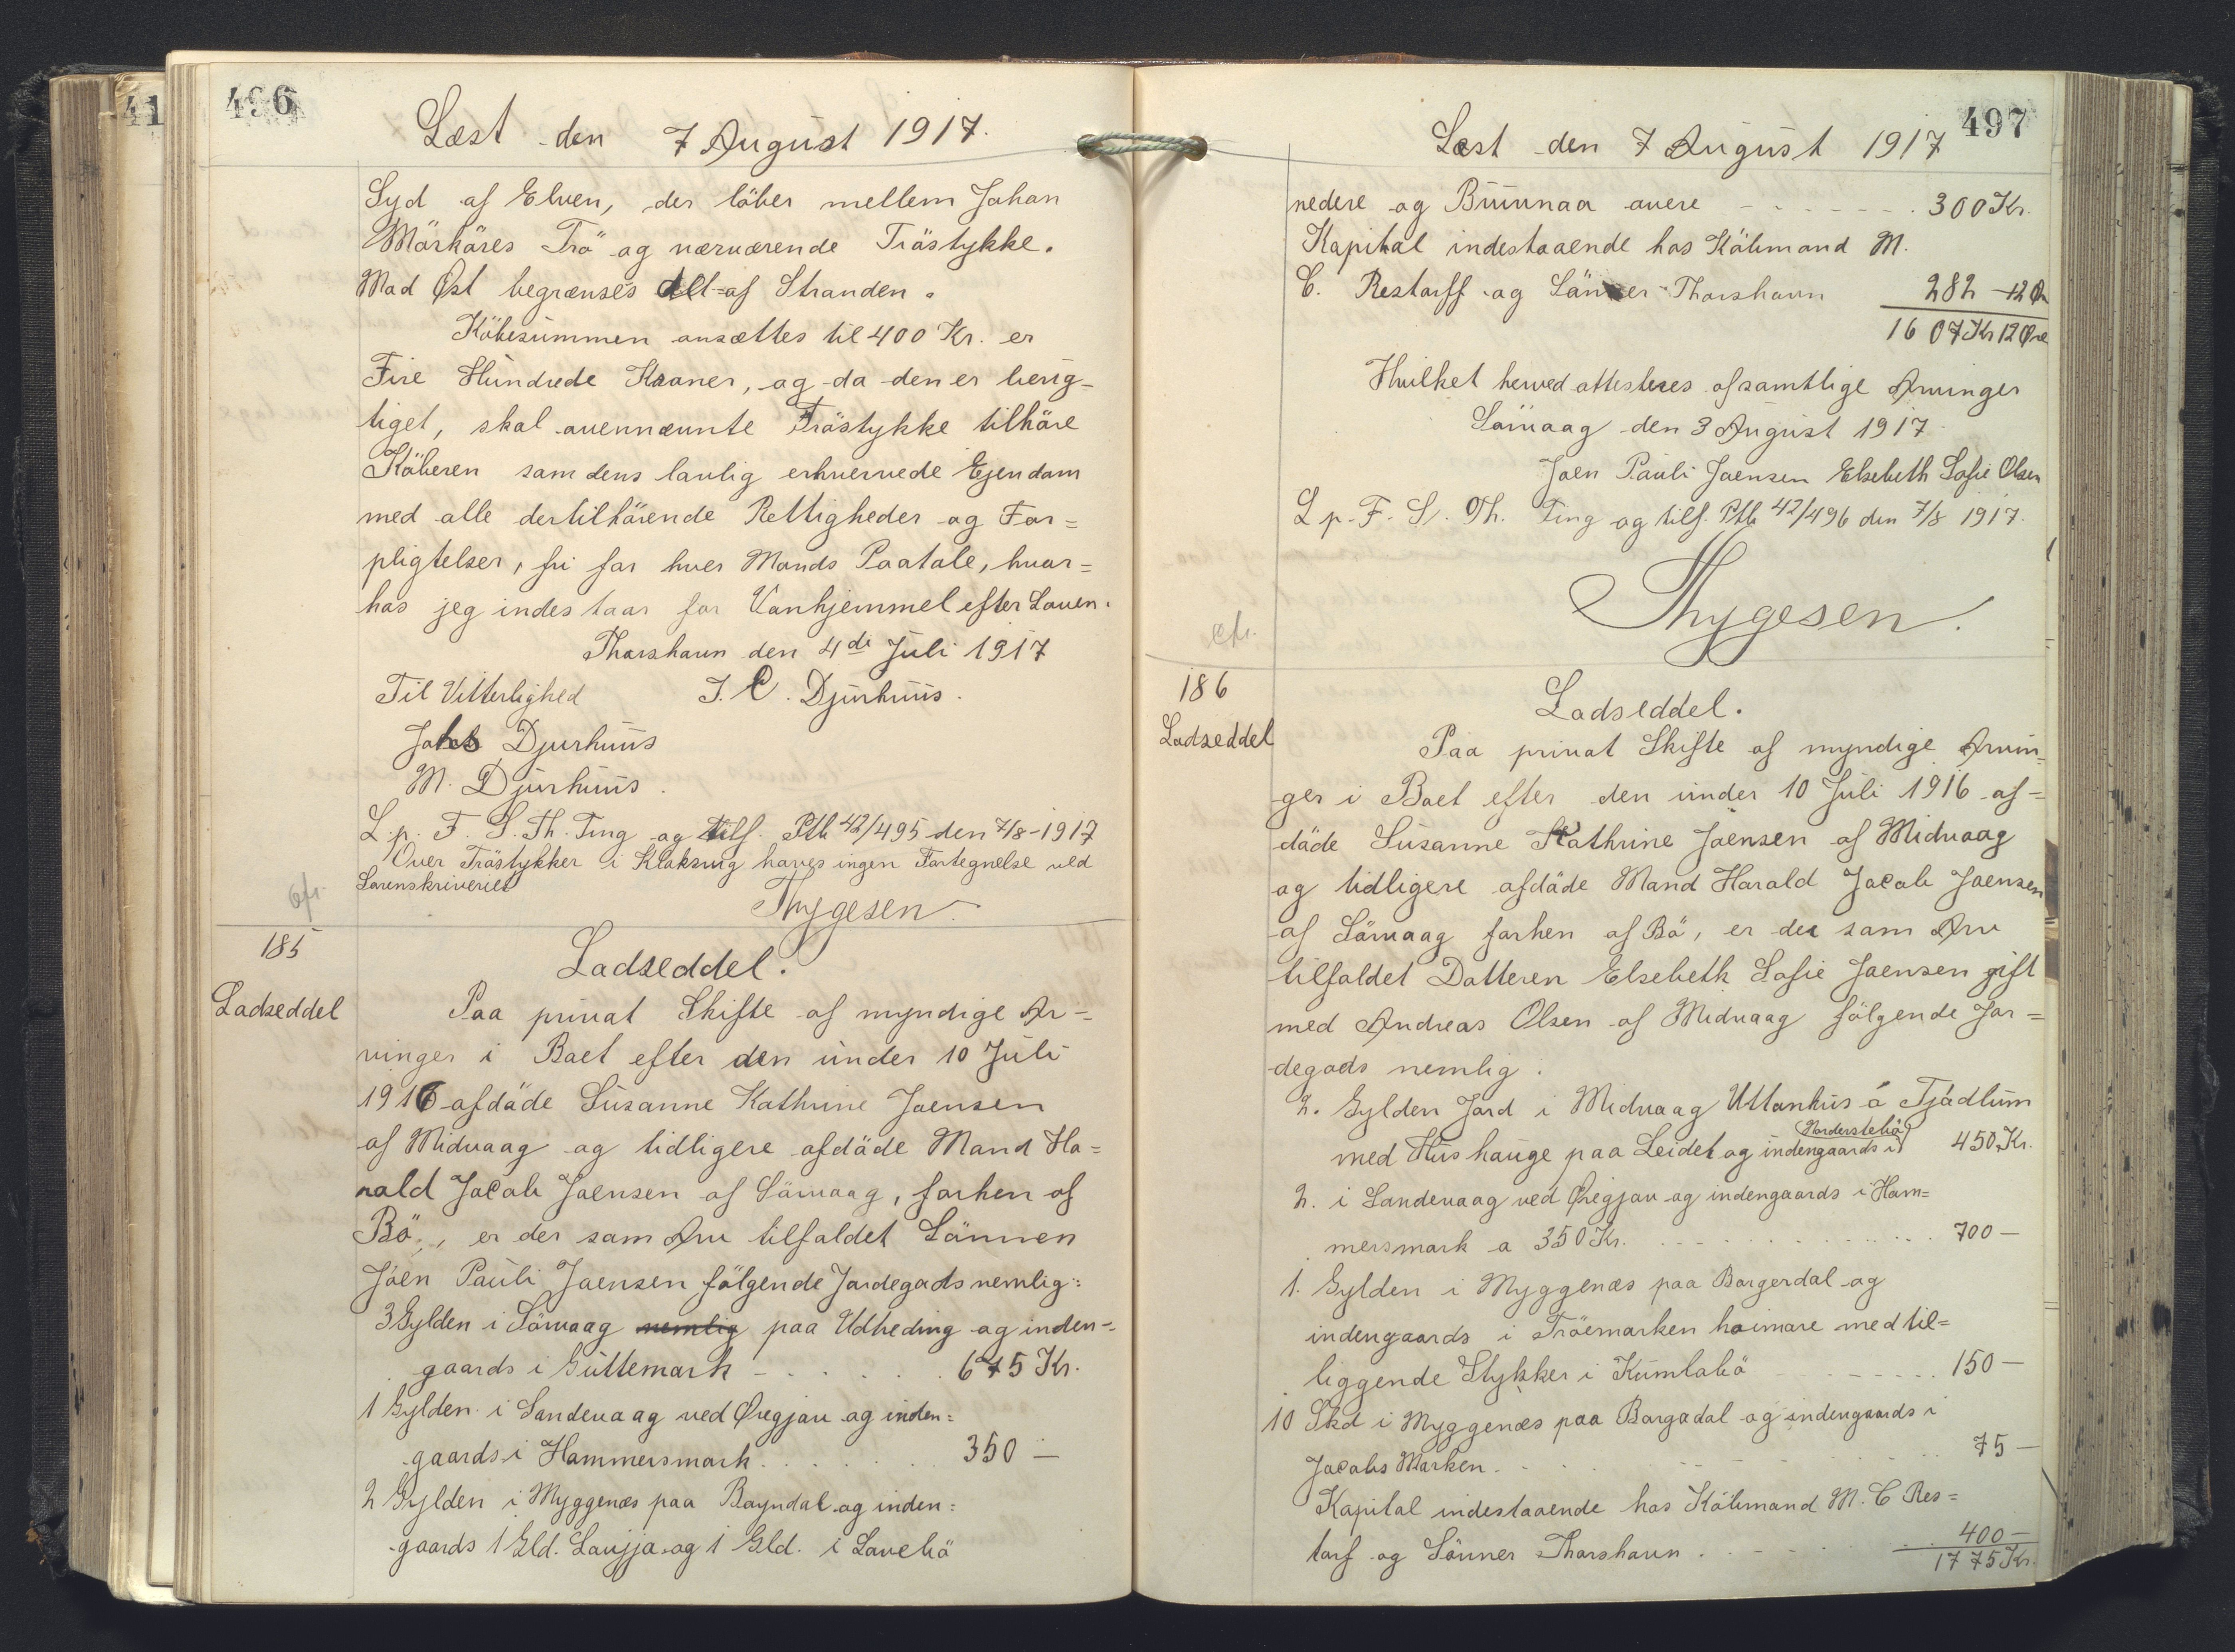 41
496
Læst den 7 August 1917.
Syd af Elven, der löber mellem Johan
Mörköres Trö og nærværende Tröstykke.
Mod Øst begrænses det af Stranden.
Köbesummen ansættes til 400 Kr. er
Fire Hundrede Kroner, og da den er berig-
tiget, skal ovennævnte Tröstykke tilhöre
Köberen som dens lovlig erhvervede Ejendom
med alle dertilhörende Rettigheder og For=
pligtelser, fri for hver Mands Paatale, hvor=
hos jeg indestaar for Vanhjemmel efter Loven.
Thorshavn den 4de Juli 1917
Til Vitterlighed J. C. Djurhuus.
Jakob Djurhuus
M. Djurhuus.
L. p. F. S. Th. Ting og tilf. Ptb 42/495 den 7/8-1917
Over Tröstykker i Klaksvig haves ingen Fortegnelse ved
Sorenskriveriet
Cfr.
Thygesen.
185
Ladseddel.
Ladseddel
Paa privat Skifte af myndige Ar-
vinger i Boet efter den under 10 Juli
1916 afdöde Susanne Kathrine Joensen
af Midvaag og tidligere afdöde Mand Ha=
rald Jacob Joensen af Sörvaag, forhen af
Bö, er der som Arv tilfaldet Sönnen
Jóen Pauli Joensen fölgende Jordegods nemlig:
3 Gylden i Sörvaag nemlig paa Udheding og inden-
gaards i Guttemark - . . . . . 675 Kr.
1 Gylden i Sandevaag ved Øregjov og inden=
gaards i Hammersmark . . . . . . 350 —
2 Gylden i Myggenæs paa Boyndal og inden=
gaards 1 Gld. Laujja og 1 Gld. i Lavebö
497
Læst den 7 August 1917
nedere og Brunnaa overe - - - - - - . 300 Kr.
Kapital indestaaende hos Köbmand M.
C. Restorff og Sönner Thorshavn 282 — 12 Ør
1607 Kr 12 Øre
Hvilket herved attesteres af samtlige Arvinger
Sörvaag den 3 August 1917
Joen Pauli Joensen Elsebeth Sofie Olsen
L p. F. S. Th. Ting og tilf. Ptb 42/496 den 7/8 1917.
Thygesen.
cfr.
186
Ladseddel.
Ladseddel
Paa privat Skifte af myndige Arvin=
ger i Boet efter den under 10 Juli 1916 af=
döde Susanne Kathrine Joensen af Midvaag
og tidligere afdöde Mand Harald Jacob Joensen
af Sörvaag forhen af Bö, er der som Arv
tilfaldet Datteren Elsebeth Sofie Joensen gift
med Andreas Olsen af Midvaag fölgende Jor=
degods nemlig.
2. Gylden Jord i Midvaag Uttanhus á Tjödlum
Norderstebö
med Hus hauge paa Leidet og indengaards i 450 Kr.
2. i Sandevaag ved Øregjov og indengaards i Ham=
mersmark a 350 Kr. . . . . . . . . . . 700 —
1. Gylden i Myggenæs paa Borgerdal og
indengaards i Tröemarken hoimare med til=
liggende Stykker i Kumlabö - - - - - - . . . 150 —
10 Skd i Myggenæs paa Borgadal og indengaards i
Jacobs Marken . - . . . . . 75 —
Kapital indestaaende hos Köbmand M. C Res=
torf og Sönner Thorshavn . - - - . . . 400 —
1775 Kr.